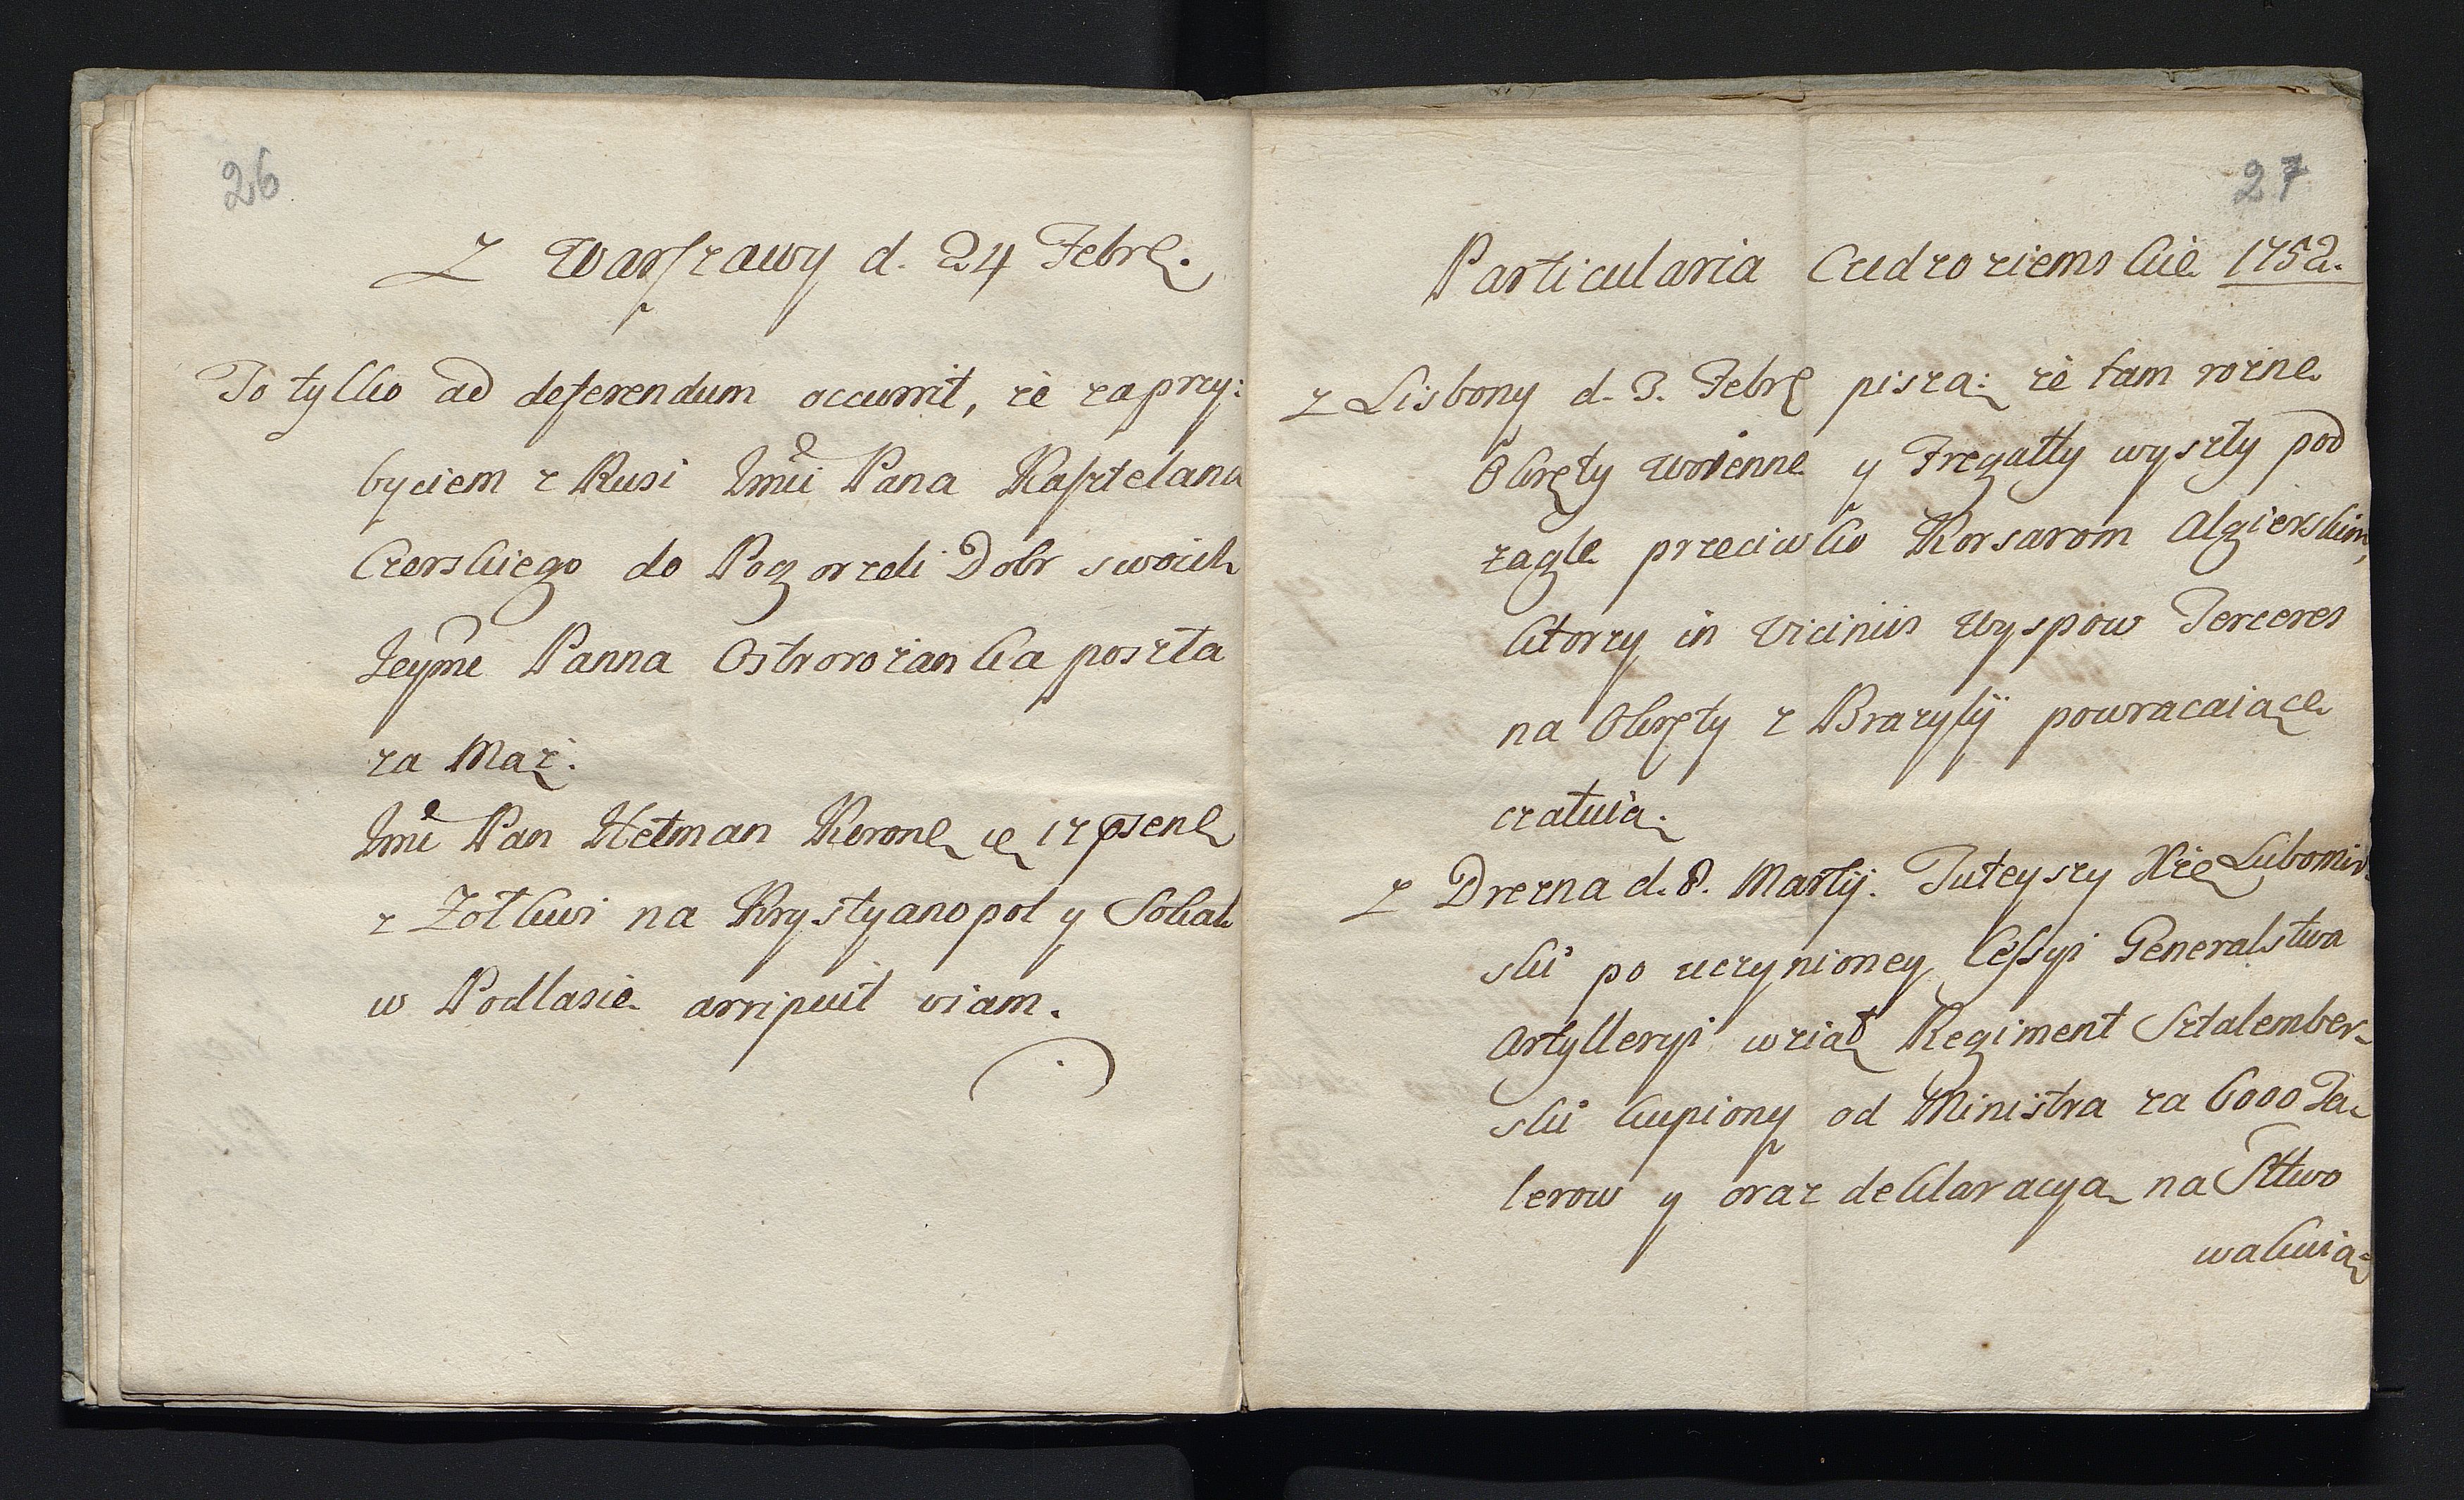 26
Z Warszawy d. 24 Febrę.
To tylko ad deferendum occurrit, że za przy:
byciem z Rusi Jmci Pana Kasztelana
Czerskiego do Pogorzeli Dobr swoich
Jeyme Panna Ostrorożanka poszła
za Mąż.
Jmć Pan Hetman Koronę 17 psenę
z Żołkwi na Krystyanopol y Sokal
w Podlasie arripuit viam.
27
Particularia Cudzoziemskie 1752.
z Lisbony d. 3. Febrę piszą: że tam rożne
Okręty woienne y Fregatty wyszły pod
żagle przeciwko Korsarom Algierskim,
ktorzy in Viciniis Wyspow Terceres
na Okręty z Brazylij powracaiące
czatuią.
z Drezna d. 8. Martij. Tuteyszy Xże Lubomir:
ski po uczynioney Cessyi Generalstwa
Artylleryi wziął Regiment Sztalember-
ski kupiony od Ministra za 6000 Ta-
lerow y oraz deklaracyą na Sttwo
wakuią: